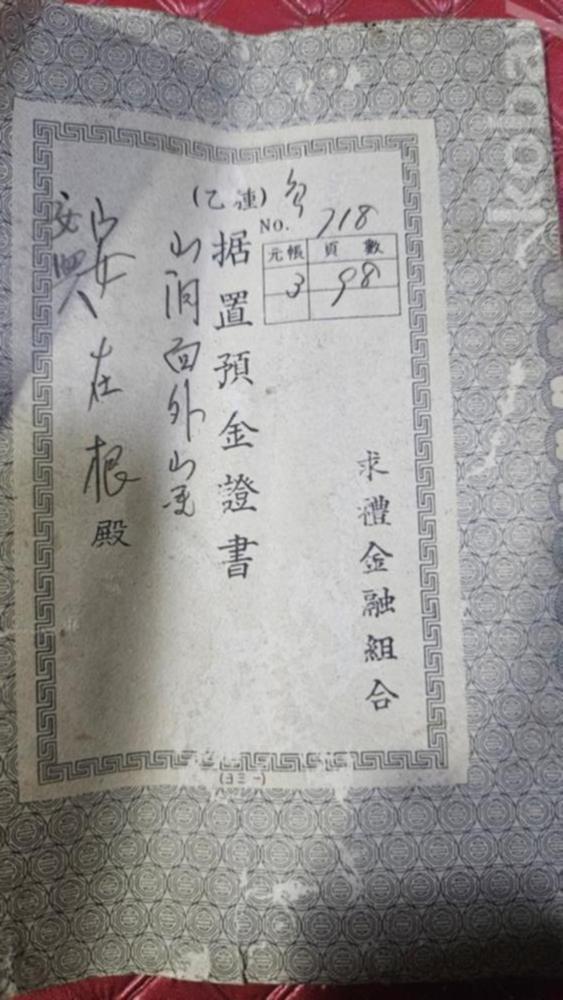 (乙種)
No. 718
元帳 頁數
3 98
求禮金融組合
据置預金證書
山洞面外山里
安在根殿
(ヨ三一)
koba